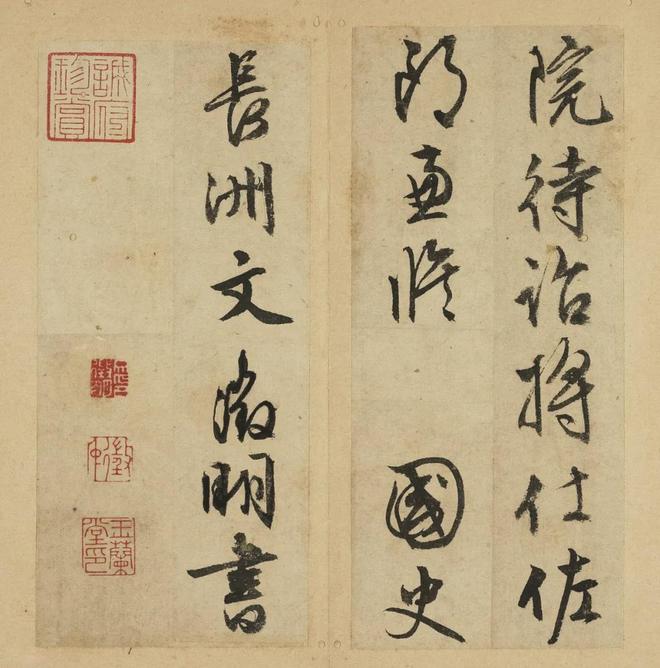 院待詔將仕佐
郎兼修 國史
長洲文徵明書
珍賞
徵仲
玉蘭堂印